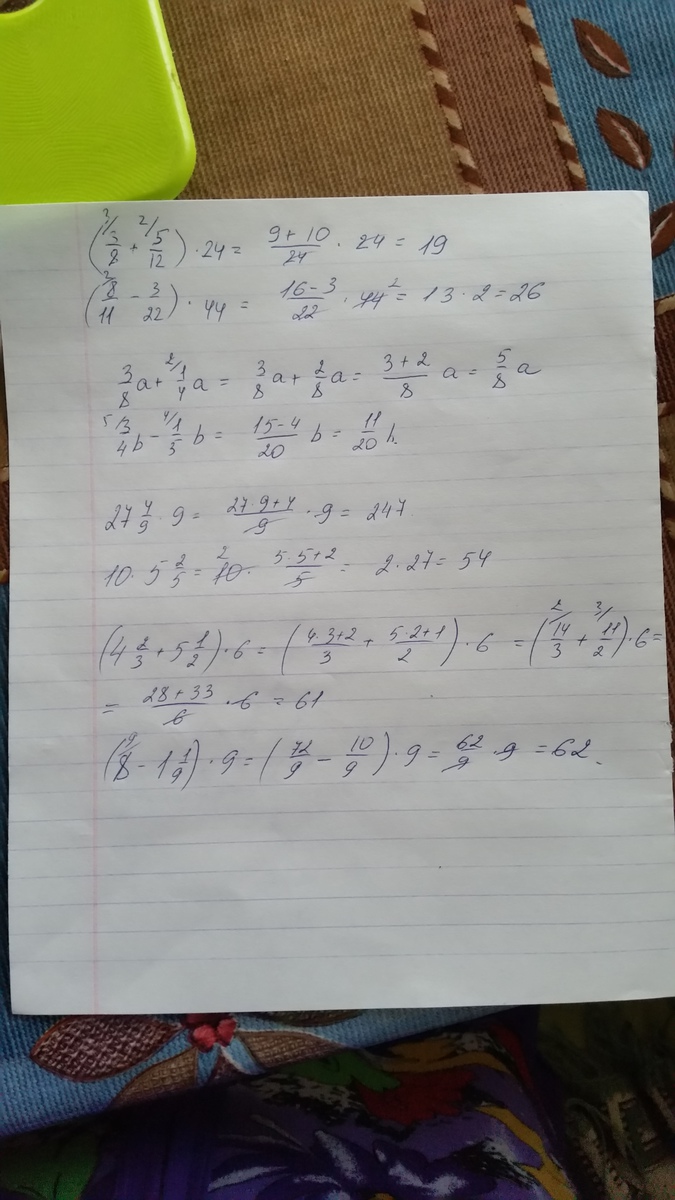 (³/3/8 + ²/5/12) · 24 = (9+10)/24 · 24 = 19
(²/8/11 − 3/22) · 44 = (16−3)/22 · 44² = 13 · 2 = 26
3/8 a + ²/1/4 a = 3/8 a + 2/8 a = (3+2)/8 a = 5/8 a
⁵/3/4 b − ⁴/1/5 b = (15−4)/20 b = 11/20 b.
27 4/9 · 9 = (27·9+4)/9 · 9 = 247
10 · 5 2/5 = ²10 · (5·5+2)/5 = 2 · 27 = 54
(4 2/3 + 5 1/2) · 6 = ((4·3+2)/3 + (5·2+1)/2) · 6 = (²/14/3 + ³/11/2) · 6 =
= (28+33)/6 · 6 = 61
(⁹/8 − 1 1/9) · 9 = (72/9 − 10/9) · 9 = 62/9 · 9 = 62.